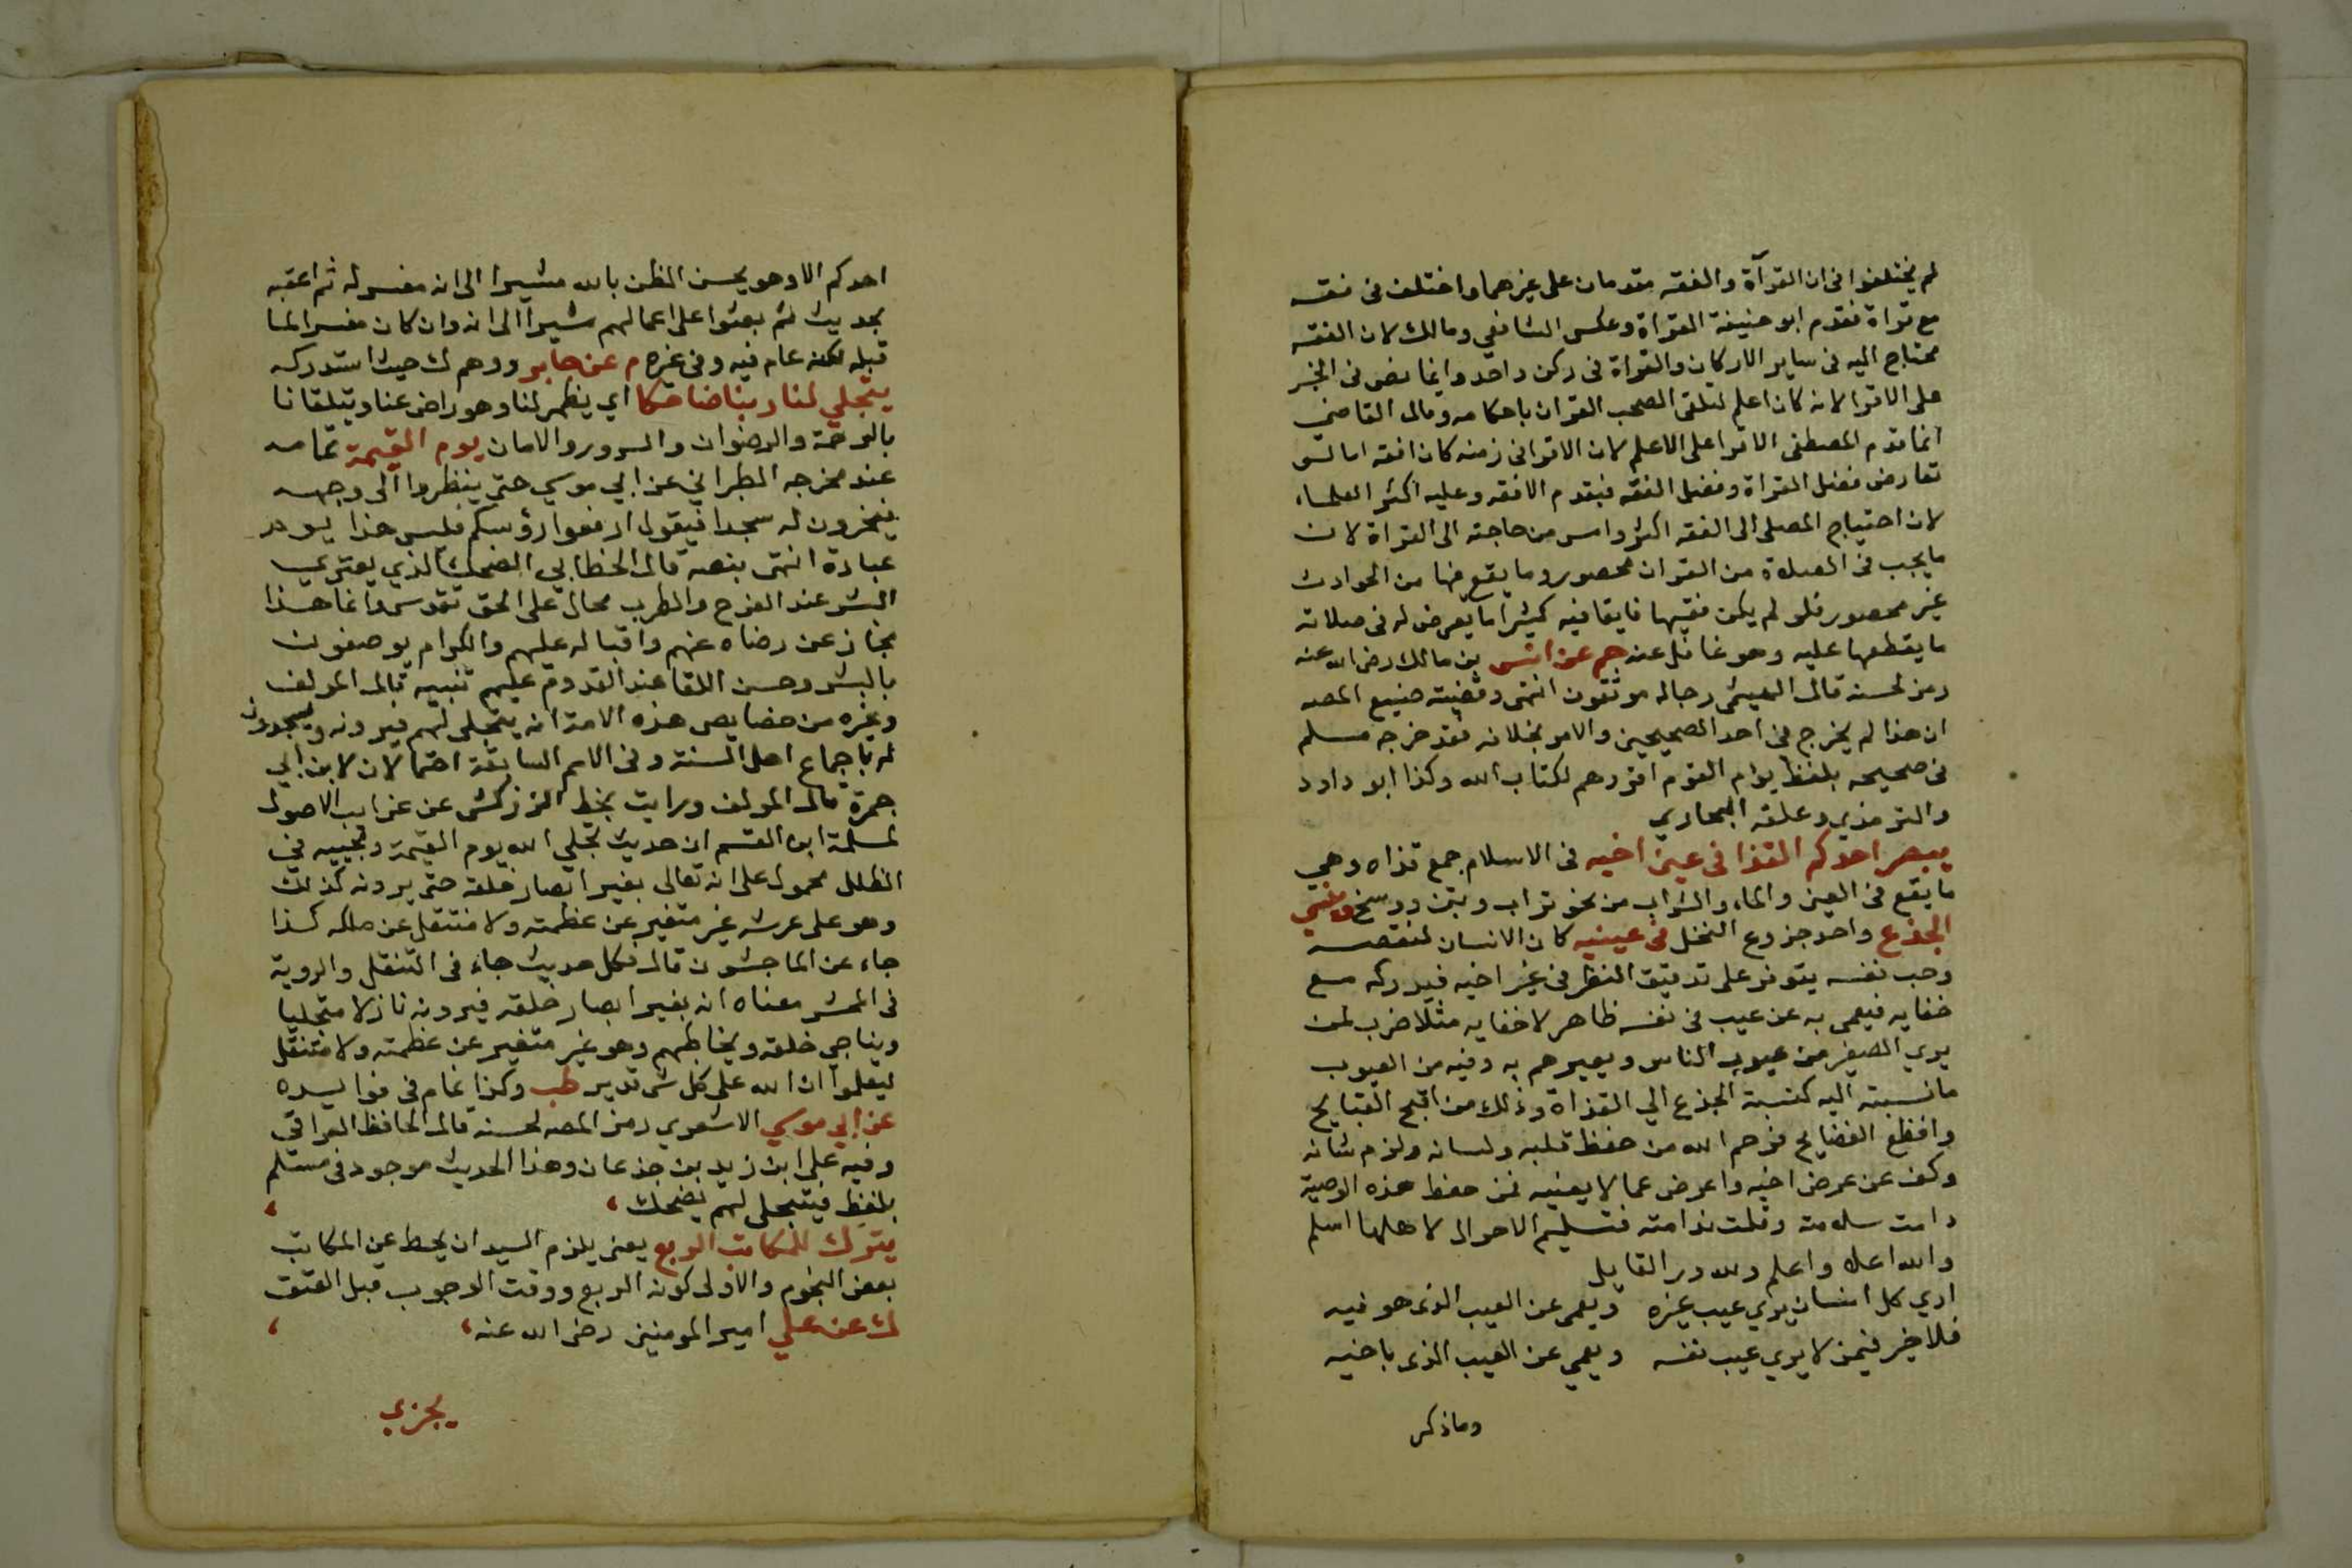 لم يختلفوا فى ان القرآة والفقه مقدمان على غيرهما واختلف فى فقه
مع قراة فقدم ابو حنيفة القراة وعكس الشافعي ومالك لان الفقه
محتاج اليه فى ساير الاركان والقراة فى ركن واحد وانما نص فى الخبر
على الاقرا لانه كان اعلم لتلقى الصحب القران باحكامه وقال القاضى
انما قدم المصطفى الاقرا على الاعلم لان الاقرا فى زمنه كان افقه اما لو
تعارض فضل القراة وفضل الفقه فيقدم الافقه وعليه اكثر العلماء
لان احتياج المصلى الى الفقه اكثر وامس من حاجته الى القراة لان
ما يجب فى الصلاة من القران محصور وما يقع فيها من الحوادث
غير محصور فلو لم يكن فقيها فايقا فيه كثيرا ما يعرض له فى صلاته
ما يقطعها عليه وهو غافل عنه حم عن انس بن مالك رضى الله عنه
رمز لحسنه قال الهيثمى رجاله موثقون انتهى وقضية صنيع المصه
ان هذا لم يخرج فى احد الصحيحين والامر بخلافه فقد خرجه مسلم
فى صحيحه بلفظ يوم القوم اقرؤهم لكتاب الله وكذا ابو داود
والترمذي وعلقه البخاري
يبصر احدكم القذا فى عين اخيه فى الاسلام جمع قذاه وهى
ما يقع فى العين والماء والشراب من نحو تراب وتبن ووسخ وينسي
الجذع واحد جزوع النخل فى عينيه كان الانسان لنقصه
وحب نفسه يتوفر على تدقيق النظر فى غير اخيه فيدركه مع
خفايه فيعمى به عن عيب فى نفسه ظاهر لا خفا به مثلا ضرب لمن
يري الصغير من عيوب الناس ويعيرهم به وفيه من العيوب
ما نسبته اليه كنسبة الجذع الي القذاة وذلك من اقبح القبايح
وافظع الفضايح فرحم الله من حفظ قلبه ولسانه ولزم شانه
وكف عن عرض اخيه واعرض عما لا يعنيه فمن حفظ هذه الوصية
دامت سلامته وقلت ندامته فتسليم الاحوال لاهلها اسلم
والله اعلا واعلم ولله در القايل
اري كل انسان يري عيب غيره ويعمى عن العيب الذى هو فيه
فلا خير فيمن لا يري عيب نفسه ويعمي عن العيب الذى باخيه
وما ذكر
احدكم الا وهو يحسن الظن بالله مشيرا الى انه مفسر له ثم اعقبه
بحديث ثم بعثوا على اعمالهم مشيرا الى انه وان كان مفسرا لما
قبله لكنه عام فيه وفى غيره م عن جابر ووهم ك حيث استدركه
يتجلي لنا ربنا ضاحكا اي يظهر لنا وهو راض عنا ويتلقانا
بالرحمة والرضوان والسرور والامان يوم القيمة تمامه
عند مخرجه الطبراني عن ابي موسي حتى ينظروا الى وجهه
فيخرون له سجدا فيقول ارفعوا رؤسكم فليس هذا يوم
عبادة انتهى بنصه قال الخطابي الضحك الذي يعتري
البشر عند الفرح والطرب محال على الحق تقدس وانما هذا
مجاز عن رضاه عنهم واقباله عليهم والكرام يوصفون
بالبشر وحسن اللقا عند القدوم عليهم تنبيه قال المولف
وغيره من خصايص هذه الامة انه يتجلى لهم فيرونه ويسجدون
له باجماع اهل السنة وفى الامم السابقة احتمالان لابن ابي
جمرة قال المولف ورايت بخط الزركشى عن غرايب الاصول
لمسلمة ابن القسم ان حديث تجلي الله يوم القيمة ومجييه في
الظلل محمول على انه تعالى يغير ابصار خلقه حتى يرونه كذلك
وهو على عرشه غير متغير عن عظمته ولا منتقل عن ملكه كذا
جاء عن الماجشون قال فكل حديث جاء فى التنقل والروية
فى المحشر معناه انه يغير ابصار خلقه فيرونه نازلا متجليا
ويناجي خلقه ويخاطبهم وهو غير متغير عن عظمته ولا متنقل
ليعلموا ان الله على كل شى قدير طب وكذا تمام فى فوايده
عن ابي موسي الاشعري رمز المصه لحسنه قال الحافظ العراقى
وفيه على ابن زيد بن جذعان وهذا الحديث موجود فى مسلم
بلفظ فيتجلى لهم يضحك
يترك للمكاتب الربع يعنى يلزم السيد ان يحط عن المكاتب
بعض النجوم والاولى كونه الربع ووقت الوجوب قبل العتق
ك عن علي امير المومنين رضى الله عنه
يجزي